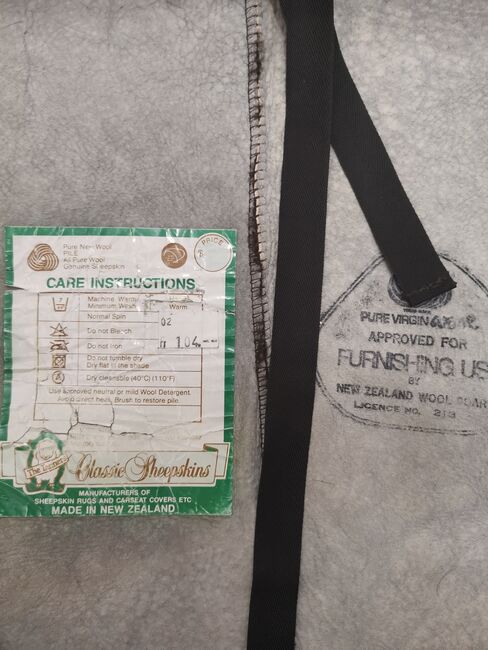 Pure New Wool
PILE
All Pure Wool
Genuine Sheepskin
PRICE
CARE INSTRUCTIONS
Machine Warm
Minimum Wash
Warm
Normal Spin
02
Do not Bleach
Do not Iron
104
Do not tumble dry
Dry flat in the shade
Dry cleanable (40°C) (110°F)
Use approved neutral or mild Wool Detergent.
Avoid direct heat. Brush to restore pile.
Classic Sheepskins
MANUFACTURERS OF
SHEEPSKIN RUGS AND CARSEAT COVERS ETC
MADE IN NEW ZEALAND
PURE VIRGIN WOOL
APPROVED FOR
FURNISHING US
BY
NEW ZEALAND WOOL BOAR
LICENCE NO. 213